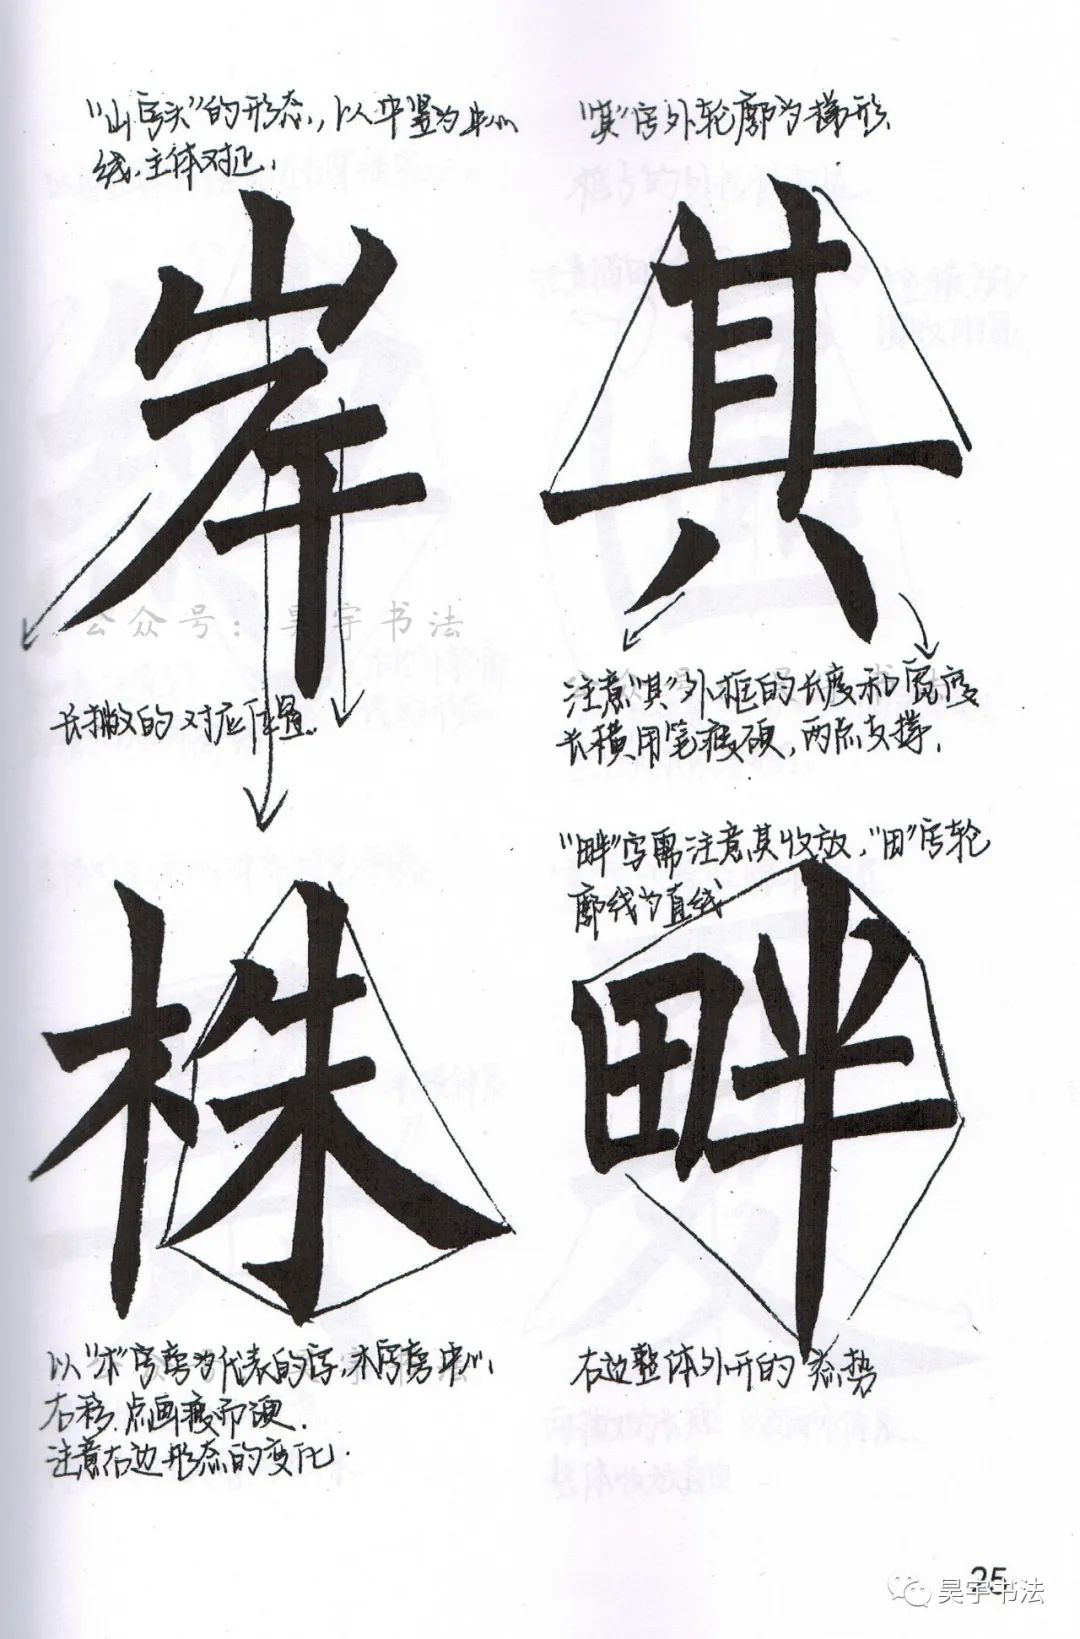 “山字头”的形态，以中竖为中心
线，主体对正.
岸
长撇的对应位置.
“其”字外轮廓为梯形.
其
注意“其”外框的长度和宽度
长横用笔瘦硬，两点支撑.
株
以“木”字旁为代表的字，木字旁中心
右移.点画瘦而硬.
注意右边形态的变化.
“畔”字需注意其收放，“田”字轮
廓线为直线
畔
右边整体外开的态势
公众号：昊宇书法
25
昊宇书法